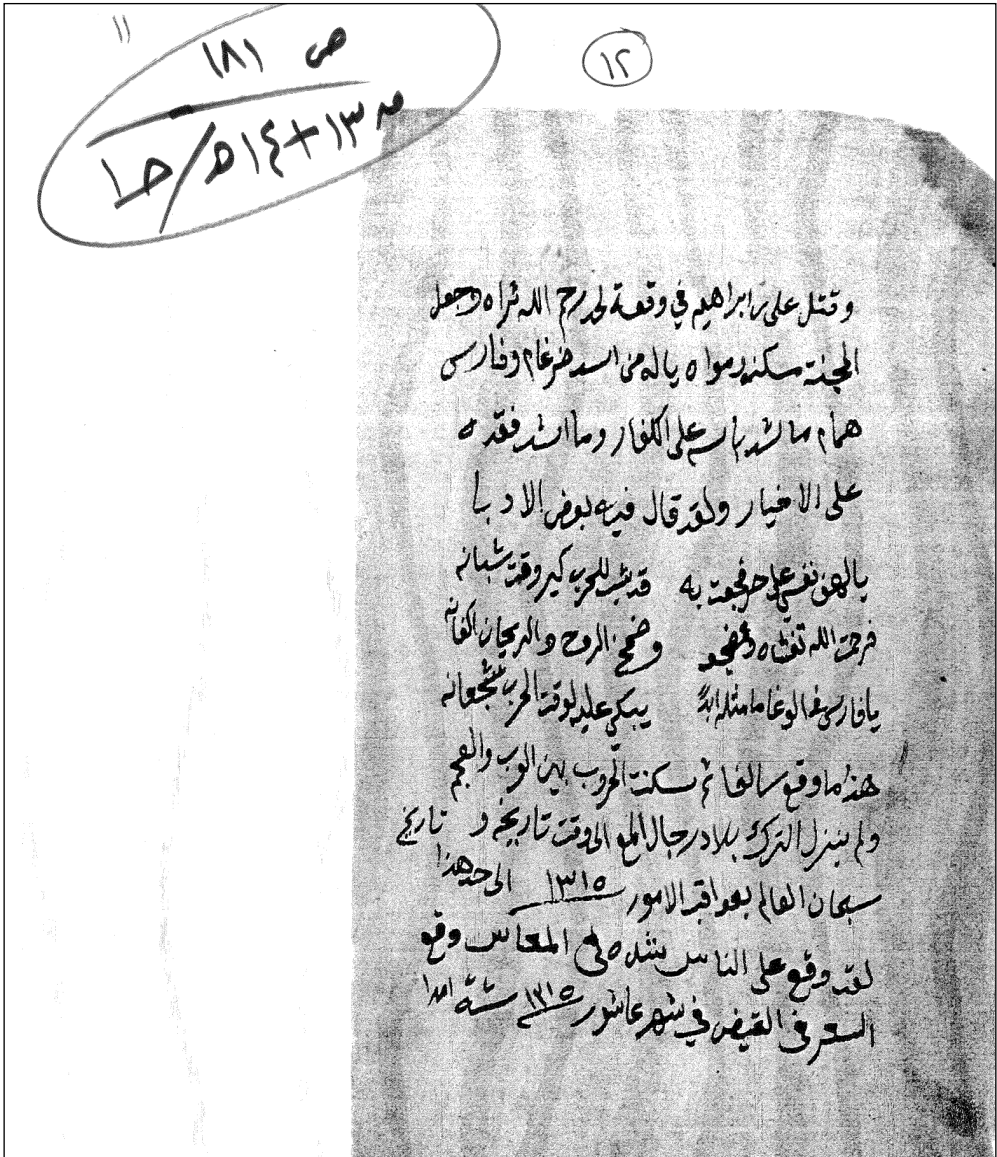 ١١
ص ١٨١
١٢
١٣+١٤ه/حـ١
وقتل علي بن ابراهيم في وقعة لحد رحم الله ثراه وجعل
الجنة سكنه ومواه ياله من اسد ضرغام وفارس
همام ما اشد باسه على الكفار وما اشد فقده
على الاخيار ولقد قال فيه بعض الادبا
يالهف نفسي على حر فجعت به قد شب للحرب كير وقت شبانه
فرحمت الله تغشاه وضمخ الروح والريحان اكفانه
يافارس في الوغا ما مثله ابدً يبكي عليه لوقت الحرب شجعانه
هذا ما وقع سالفا ثم سكنت الحروب بين العرب والعجم
ولم ينزل الترك بلاد رجال المع الى وقت تاريخه و تاريخ
سبحان العالم بعواقب الامور ١٣١٥ الى حد هذا
لقد وقع على الناس شده في المعاس وقع
السعر في القيض في شهر عاشور ١٣١٥ ستة امدا